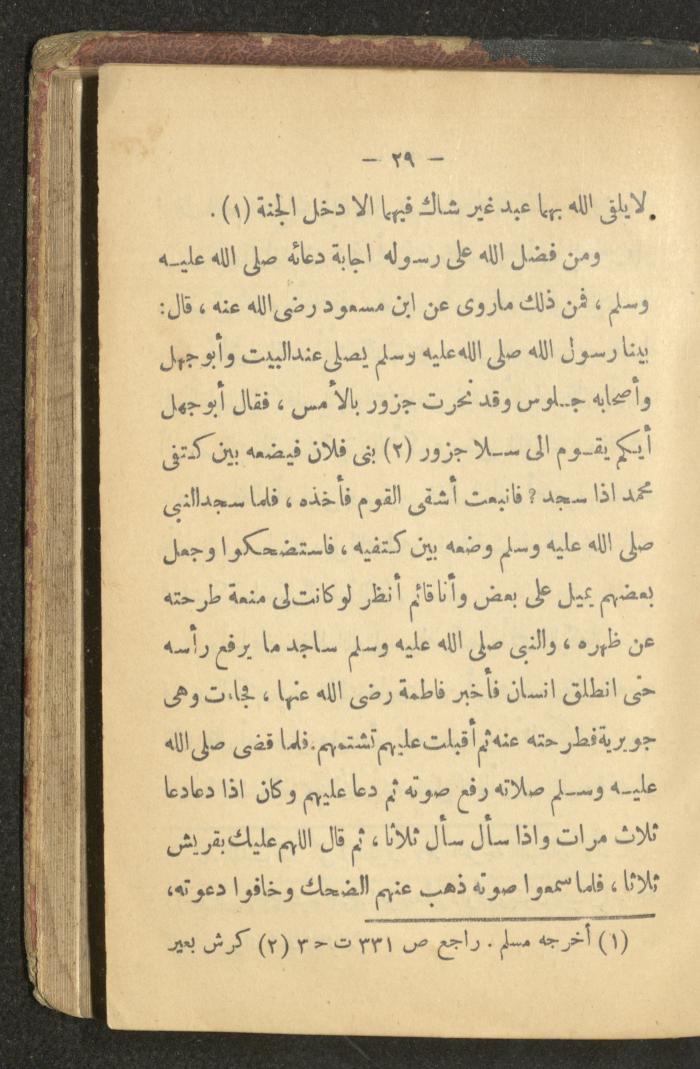 — ٢٩ —
لا يلقى الله بهما عبد غير شاك فيهما الا دخل الجنة (١) .
ومن فضل الله على رسوله اجابة دعائه صلى الله عليه
وسلم ، فمن ذلك ماروى عن ابن مسعود رضى الله عنه ، قال:
بينا رسول الله صلى الله عليه وسلم يصلى عند البيت وأبو جهل
وأصحابه جلوس وقد نحرت جزور بالأمس ، فقال أبو جهل
أيكم يقوم الى سلا جزور (٢) بنى فلان فيضعه بين كتفى
محمد اذا سجد ? فانبعث أشقى القوم فأخذه ، فلما سجد النبي
صلى الله عليه وسلم وضعه بين كتفيه ، فاستضحكوا وجعل
بعضهم يميل على بعض وأنا قائم أنظر لو كانت لى منعة طرحته
عن ظهره ، والنبي صلى الله عليه وسلم ساجد ما يرفع رأسه
حتى انطلق انسان فأخبر فاطمة رضى الله عنها ، فجاءت وهى
جويرية فطرحته عنه ثم أقبلت عليهم تشتمهم. فلما قضى صلى الله
عليه وسلم صلاته رفع صوته ثم دعا عليهم وكان اذا دعا دعا
ثلاث مرات واذا سأل سأل ثلاثا ، ثم قال اللهم عليك بقريش
ثلاثا ، فلما سمعوا صوته ذهب عنهم الضحك وخافوا دعوته،
(١) أخرجه مسلم . راجع ص ٣٣١ ت ح ٣ (٢) كرش بعير